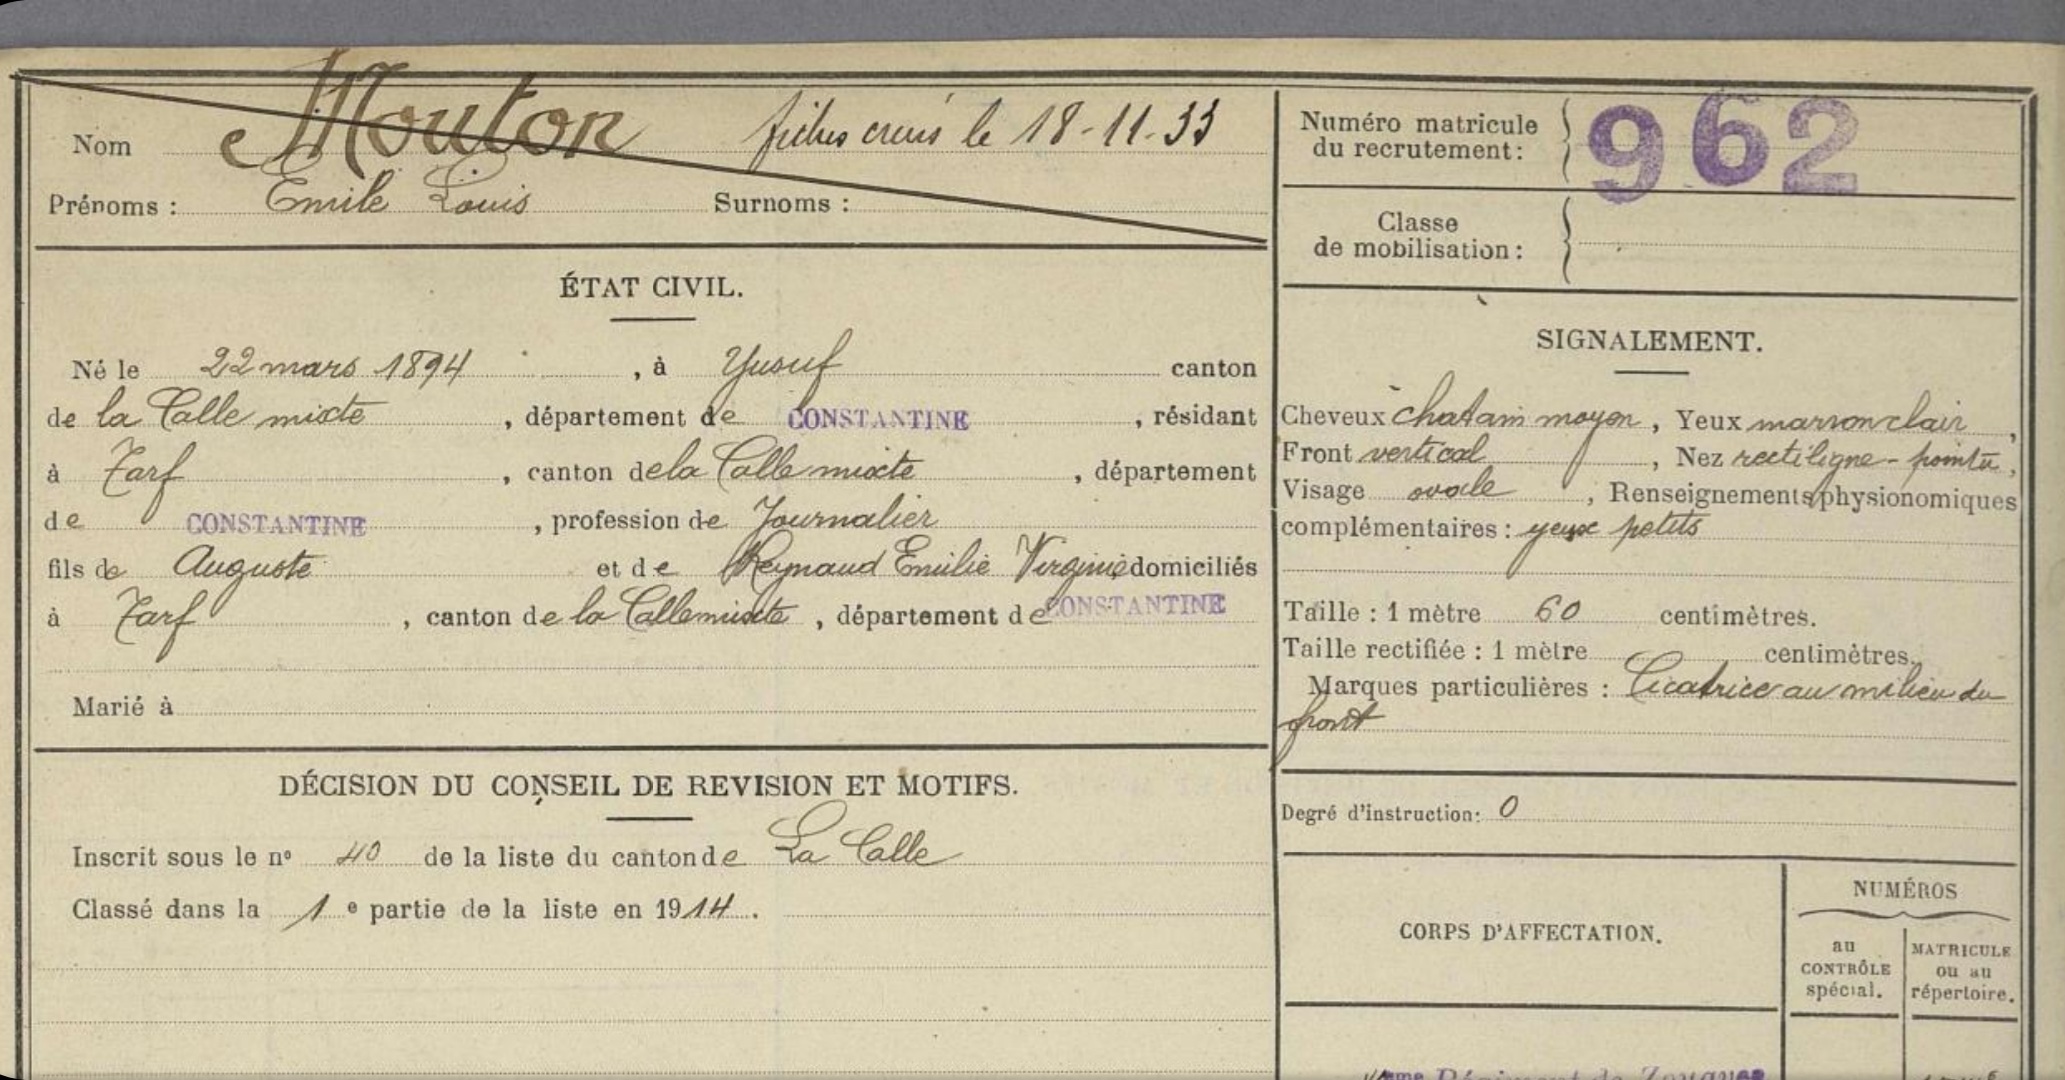 Nom Mouton fiches crées le 18-11-33
Prénoms : Emile Louis Surnoms :
ÉTAT CIVIL.
Né le 22 mars 1894, à Yusuf canton
de la Calle mixte, département de CONSTANTINE, résidant
à Tarf, canton de la Calle mixte, département
de CONSTANTINE, profession de Journalier
fils de Auguste et de Reynaud Emilie Virginie domiciliés
à Tarf, canton de la Calle mixte, département de CONSTANTINE
Marié à
DÉCISION DU CONSEIL DE REVISION ET MOTIFS.
Inscrit sous le nº 40 de la liste du canton de La Calle
Classé dans la 1e partie de la liste en 1914.
Numéro matricule
du recrutement : 962
Classe
de mobilisation :
SIGNALEMENT.
Cheveux chatain moyen, Yeux marron clair,
Front vertical, Nez rectiligne - pointu,
Visage ovale, Renseignements physionomiques
complémentaires : yeux petits
Taille : 1 mètre 60 centimètres.
Taille rectifiée : 1 mètre centimètres.
Marques particulières : Cicatrice au milieu du
front
Degré d'instruction : 0
NUMÉROS
CORPS D'AFFECTATION.
au
CONTRÔLE
spécial.
MATRICULE
ou au
répertoire.
Régiment de Zouaves